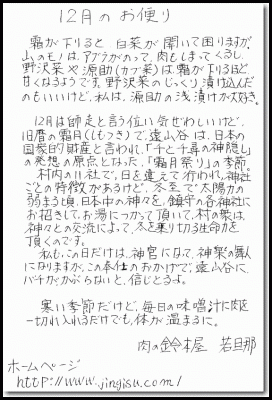 12月のお便り
霜が下りると白菜が開いて困りますが、
山のモノは、アブラがのって、肉もしまってくるし、
野沢菜や源助(カブ菜)は霜が下りるほど、
甘くなるようです。野沢菜のじっくり漬け込んだ
のもいいけど、私は、源助の浅漬けが大好き。
12月は師走と言う位い気ぜわしいけど、
旧暦の霜月(しもつき)で、遠山谷は、日本の
国家的財産と言われ、「千と千尋の神隠し」
の発想の原点となった、「霜月祭り」の季節。
村内の11社で、日を違えて行われ、神社
ごとの特徴があるけど、冬至で太陽力の
弱まる頃、日本中の神々を、鎮守の各神社に
お招きして、お湯につかって頂いて、村の衆は、
神々との交流によって、冬を乗り切る生命力を
頂くのです。
私も、この日だけは、神官になって、神楽の舞人
になりますが、この奉仕のおかげで、遠山谷に、
バチがカぶらないと、信じとるよ。
寒い季節だけど、毎日の味噌汁に肉を
一切れ入れるだけでも、体が温まるに。
肉の鈴木屋 若旦那
ホームページ
http://www.jingisu.com/